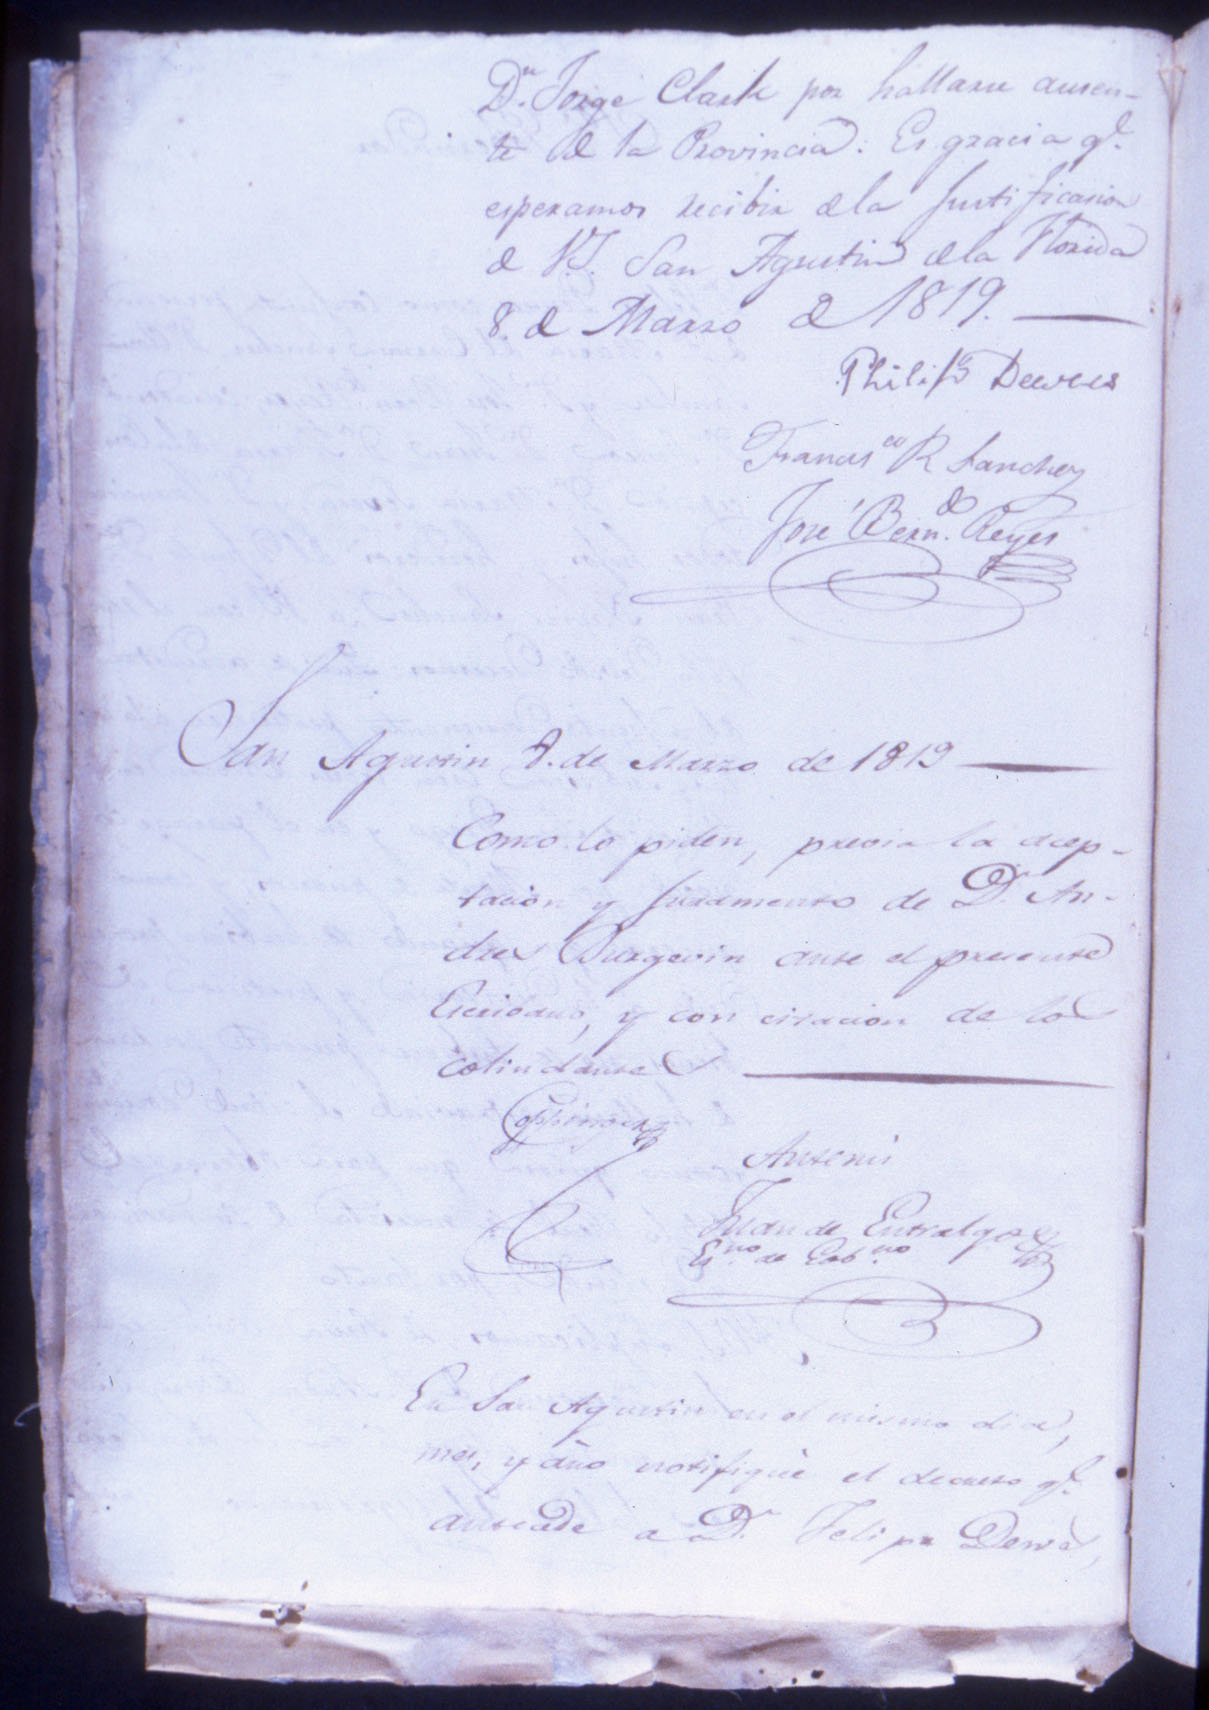 Dn. Jorge Clark por hallarse ausen-
te de la Provincia: Es gracia qe.
esperamos recibir de la Justificacion
de V.S. San Agustin de la Florida
8. de Marzo de 1819.
Philip Dewees
Francisco R Sanchez
José Bern.do Reyes
San Agustin 8. de Marzo de 1819
Como lo piden, previa la acep-
tacion y juramento de Dn. An-
dres Burgevin ante el presente
Escribano, y con citacion de los
colindantes
Coppinger
Antemi
Juan de Entralgo
Es.no de Gob.no
En San Agustin en el mismo dia,
mes, y año notifiqué el decreto qe.
antecede a Dn. Felipe Dewes,